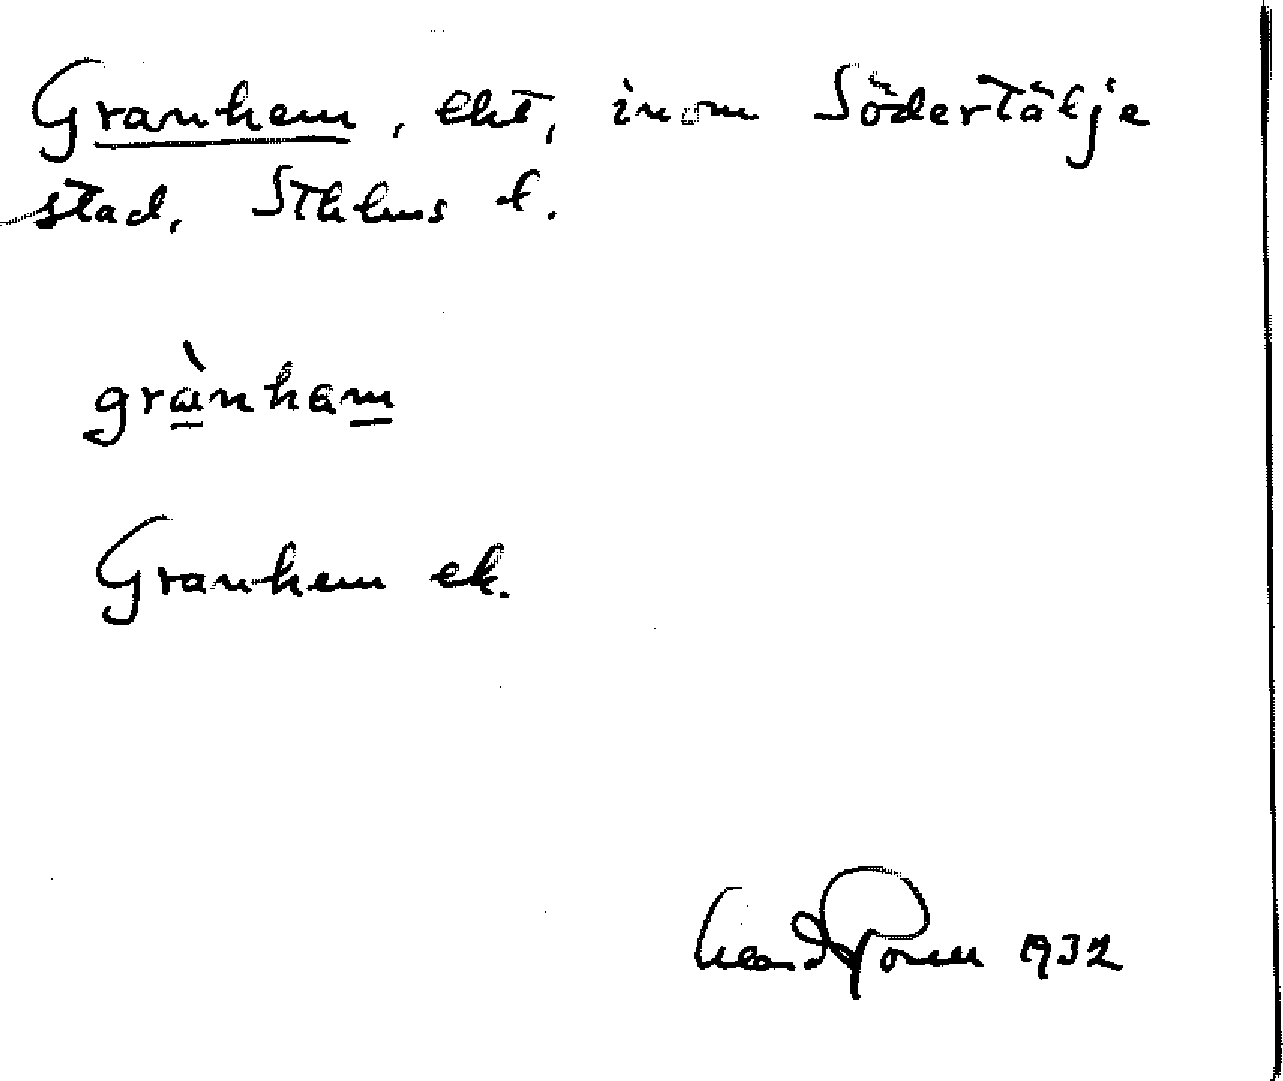 Granhem, lht, inom Södertälje
stad, Sthlms l.
grànham
Granhem ek.
1932